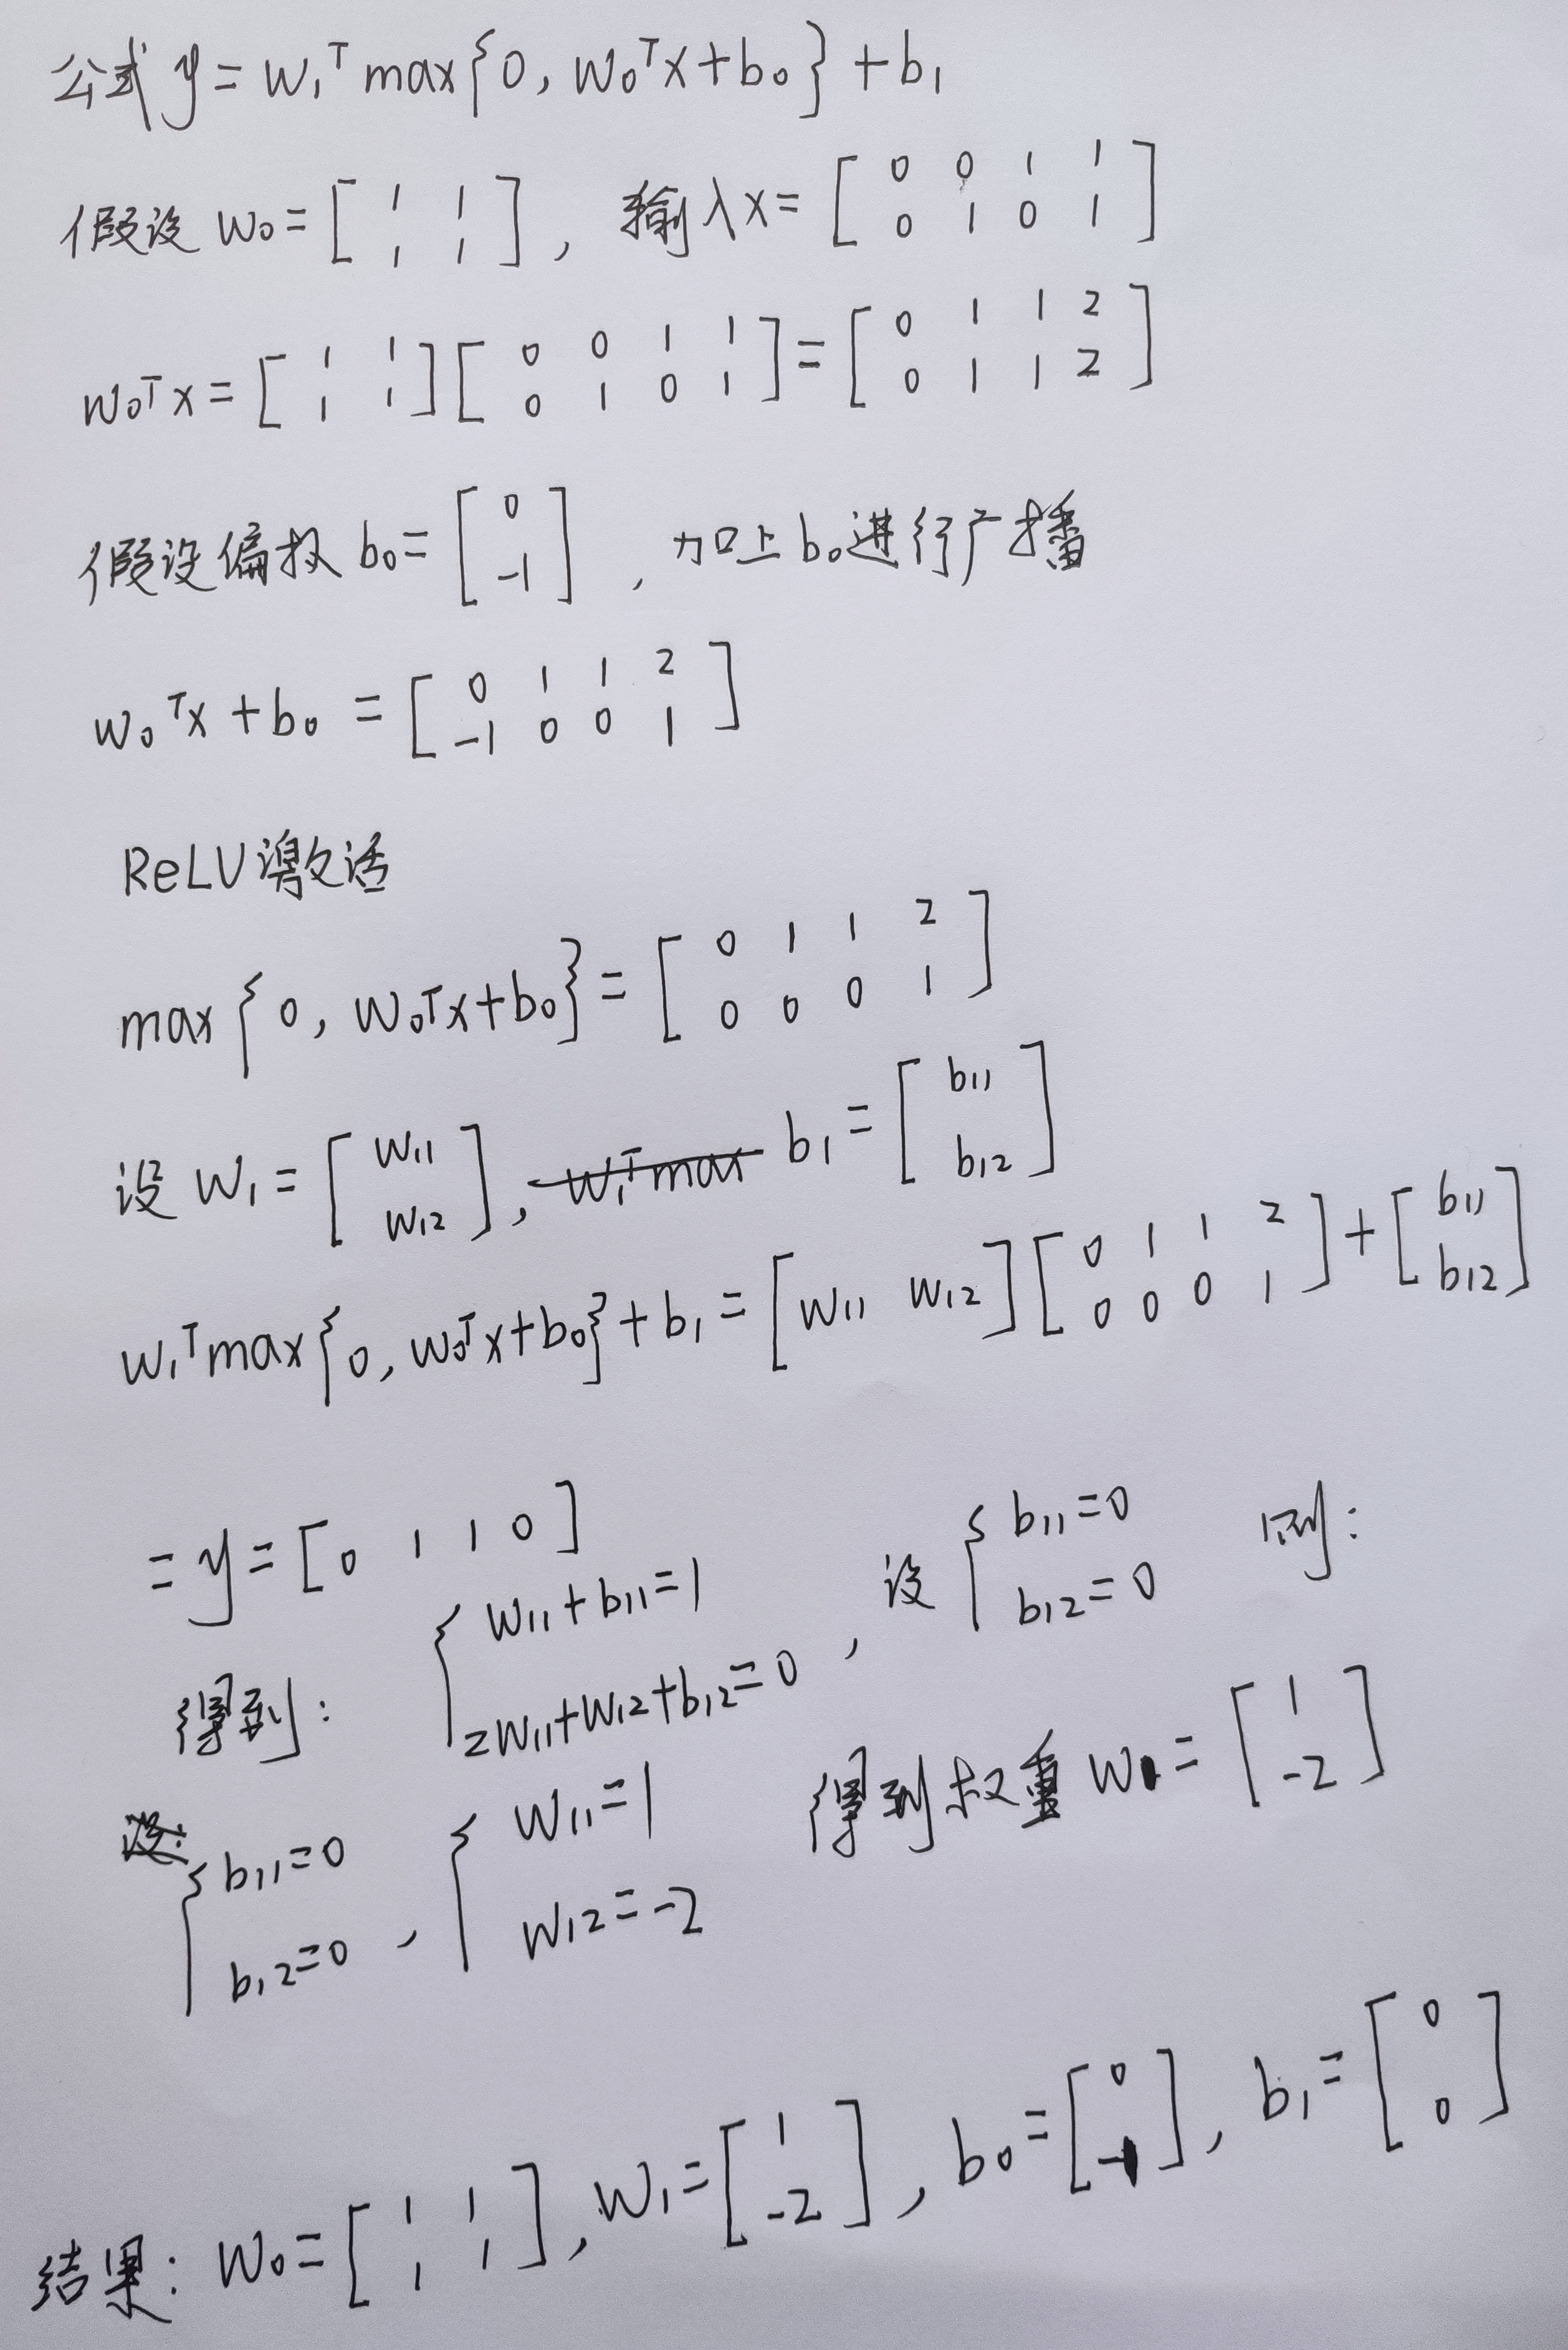 公式 y = W₁ᵀ max{0, W₀ᵀx + b₀} + b₁
假设 W₀ = [1 1; 1 1], 输入x = [0 0 1 1; 0 1 0 1]
W₀ᵀx = [1 1; 1 1][0 0 1 1; 0 1 0 1] = [0 1 1 2; 0 1 1 2]
假设偏权 b₀ = [0; -1], 加上b₀进行广播
W₀ᵀx + b₀ = [0 1 1 2; -1 0 0 1]
ReLU激活
max{0, W₀ᵀx + b₀} = [0 1 1 2; 0 0 0 1]
设 W₁ = [W₁₁; W₁₂], W₁ᵀmax b₁ = [b₁₁; b₁₂]
W₁ᵀmax{0, W₀ᵀx + b₀} + b₁ = [W₁₁ W₁₂][0 1 1 2; 0 0 0 1] + [b₁₁; b₁₂]
= y = [0 1 1 0]
得到: { W₁₁ + b₁₁ = 1; 2W₁₁ + W₁₂ + b₁₂ = 0, 设 { b₁₁ = 0; b₁₂ = 0 则:
设: { b₁₁ = 0; b₁₂ = 0, { W₁₁ = 1; W₁₂ = -2 得到权重 W₁ = [1; -2]
结果: W₀ = [1 1; 1 1], W₁ = [1; -2], b₀ = [0; -1], b₁ = [0; 0]